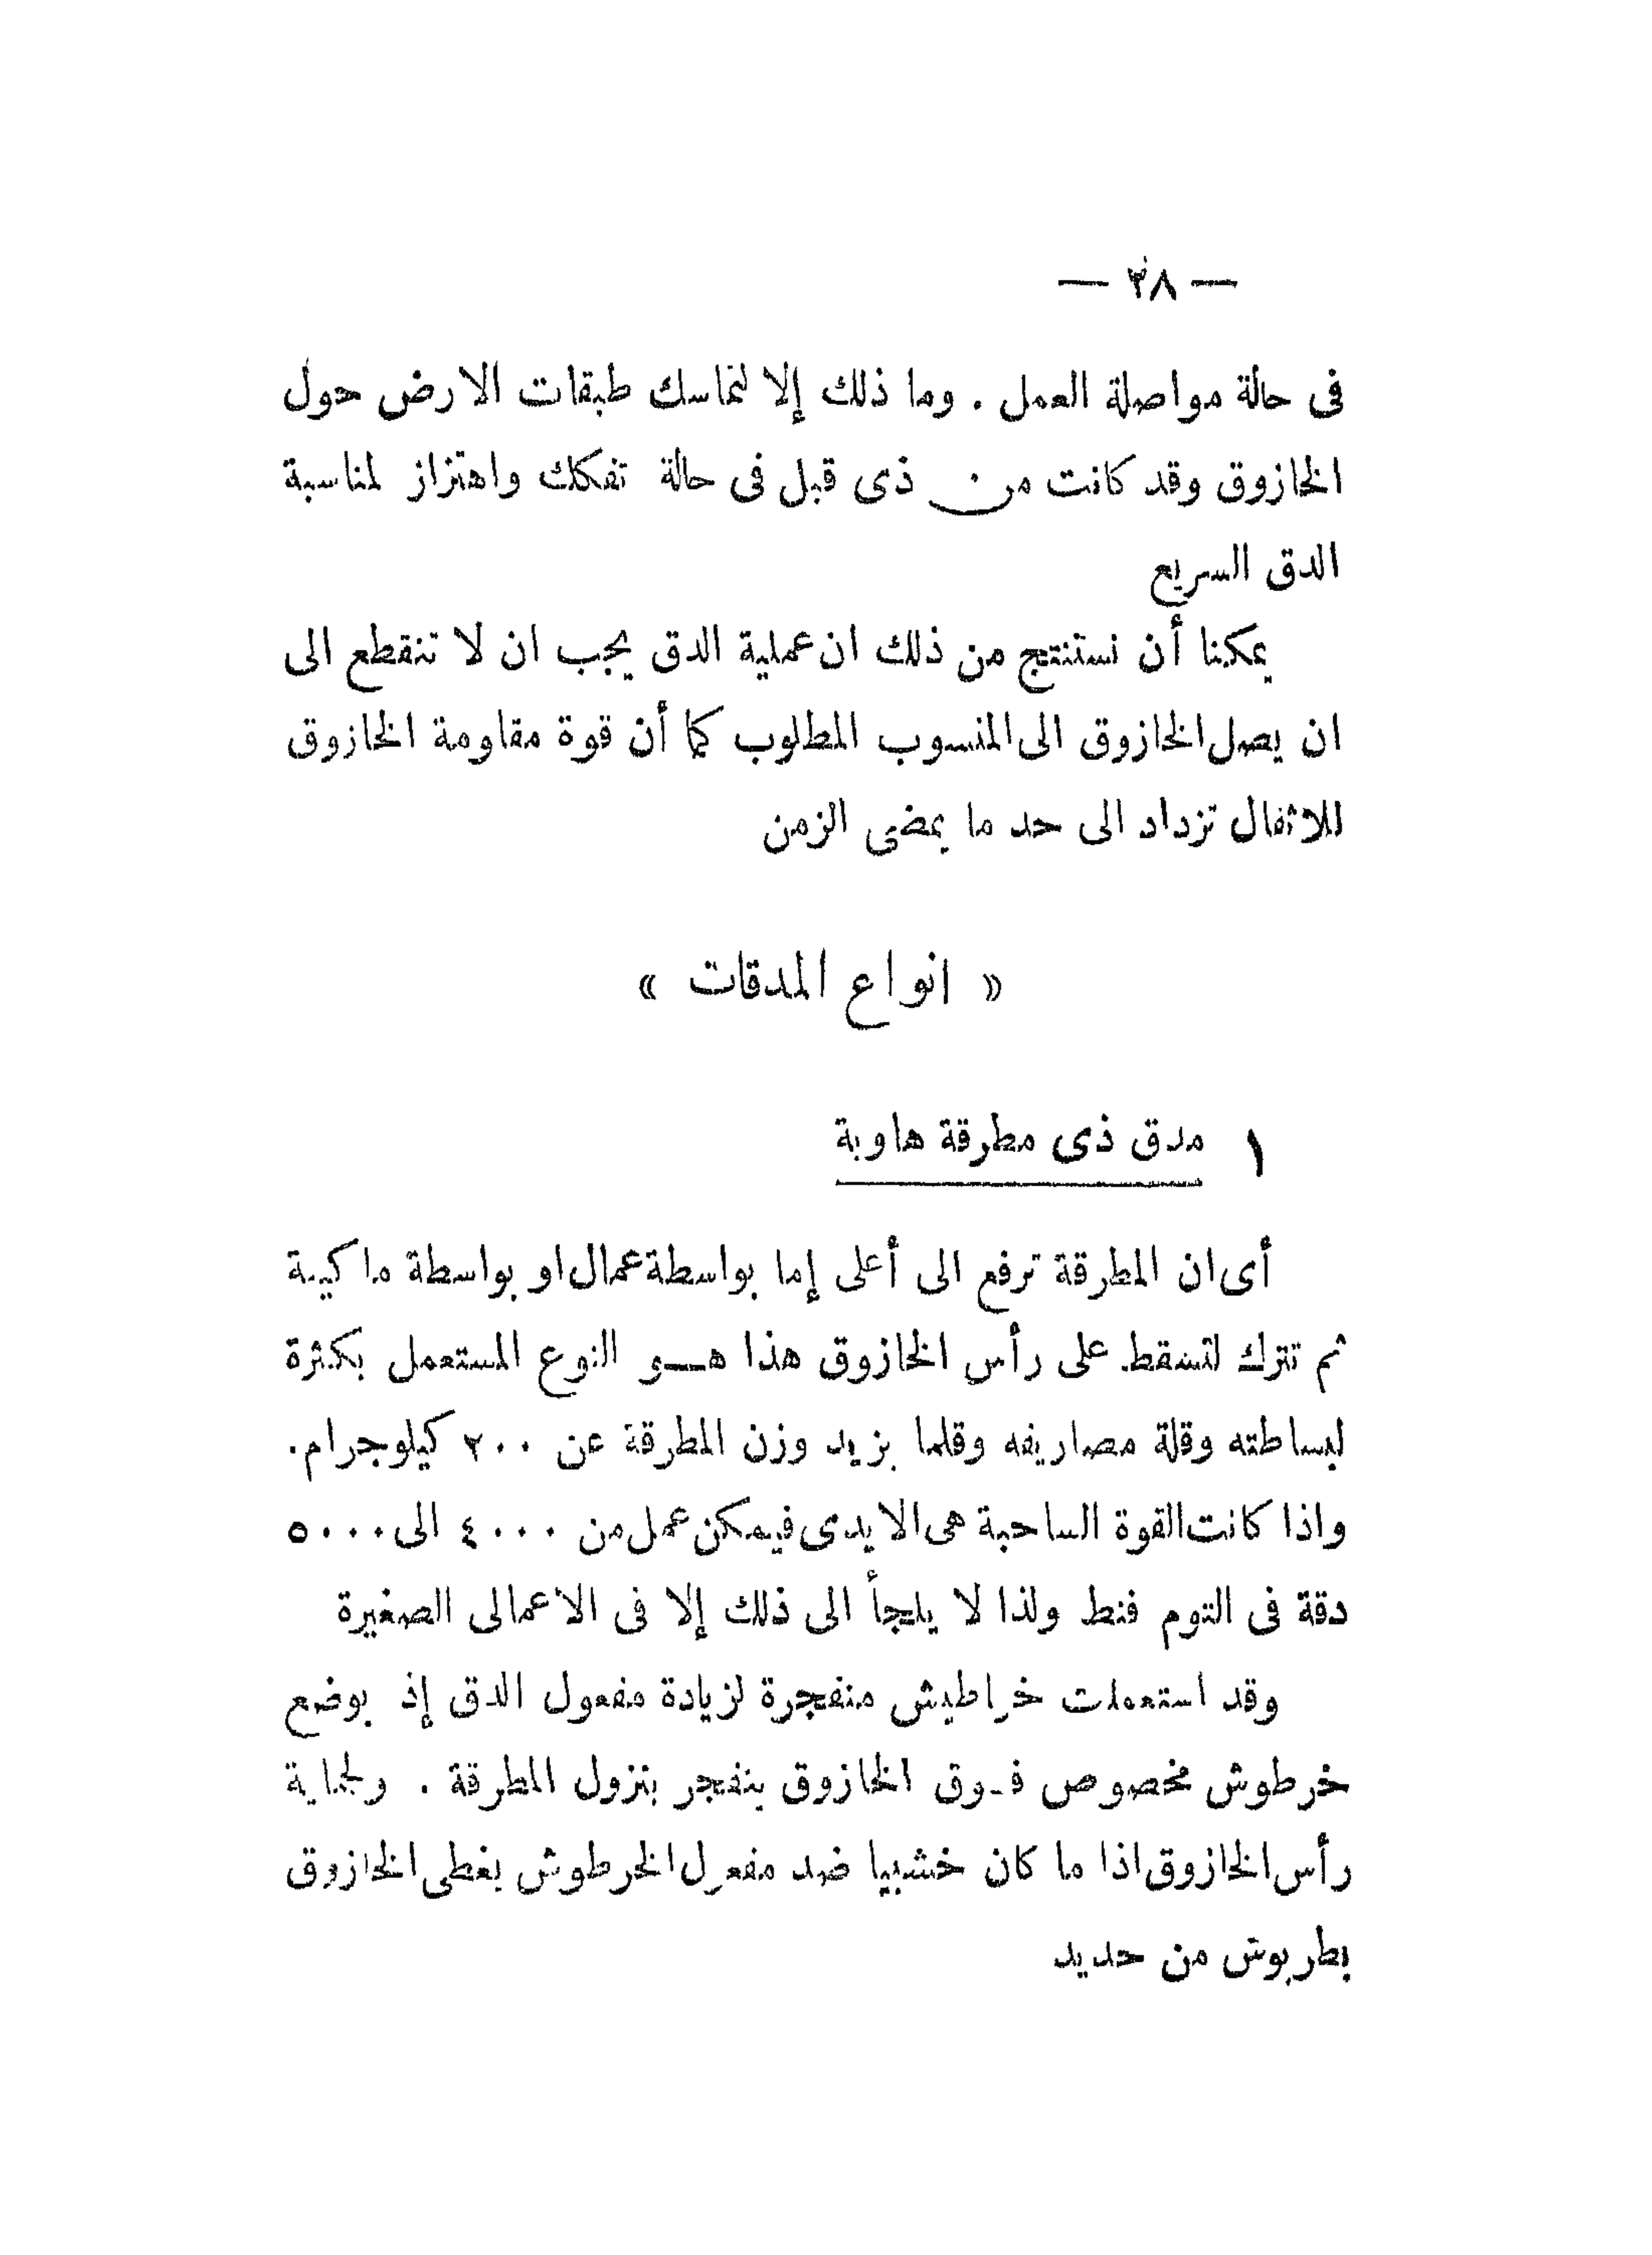 — ٢٨ —
فى حالة مواصلة العمل . وما ذلك إلا لتماسك طبقات الارض حول
الخازوق وقد كانت من ذى قبل فى حالة تفكك واهتزاز لمناسبة
الدق السريع
يمكننا أن نستنتج من ذلك ان عملية الدق يجب ان لا تنقطع الى
ان يصل الخازوق الى المنسوب المطلوب كما أن قوة مقاومة الخازوق
للاثفال تزداد الى حد ما بمضى الزمن
« انواع المدقات »
١ مدق ذى مطرقة هاوية
أى ان المطرقة ترفع الى أعلى إما بواسطة عمال او بواسطة ماكينة
ثم تترك لتسقط على رأس الخازوق هذا هو النوع المستعمل بكثرة
لبساطته وقلة مصاريفه وقلما يزيد وزن المطرقة عن ٢٠٠ كيلوجرام.
واذا كانت القوة الساحبة هى الايدى فيمكن عمل من ٤٠٠٠ الى ٥٠٠٠
دقة فى التوم فنط ولذا لا يلجأ الى ذلك إلا فى الاعمالى الصغيرة
وقد استعملت خراطيش منفجرة لزيادة مفعول الدق إذ يوضع
خرطوش مخصوص فوق الخازوق ينفجر بنزول المطرقة . ولحماية
رأس الخازوق اذا ما كان خشبيا ضد مفعول الخرطوش يغطى الخازوق
بطربوش من حديد